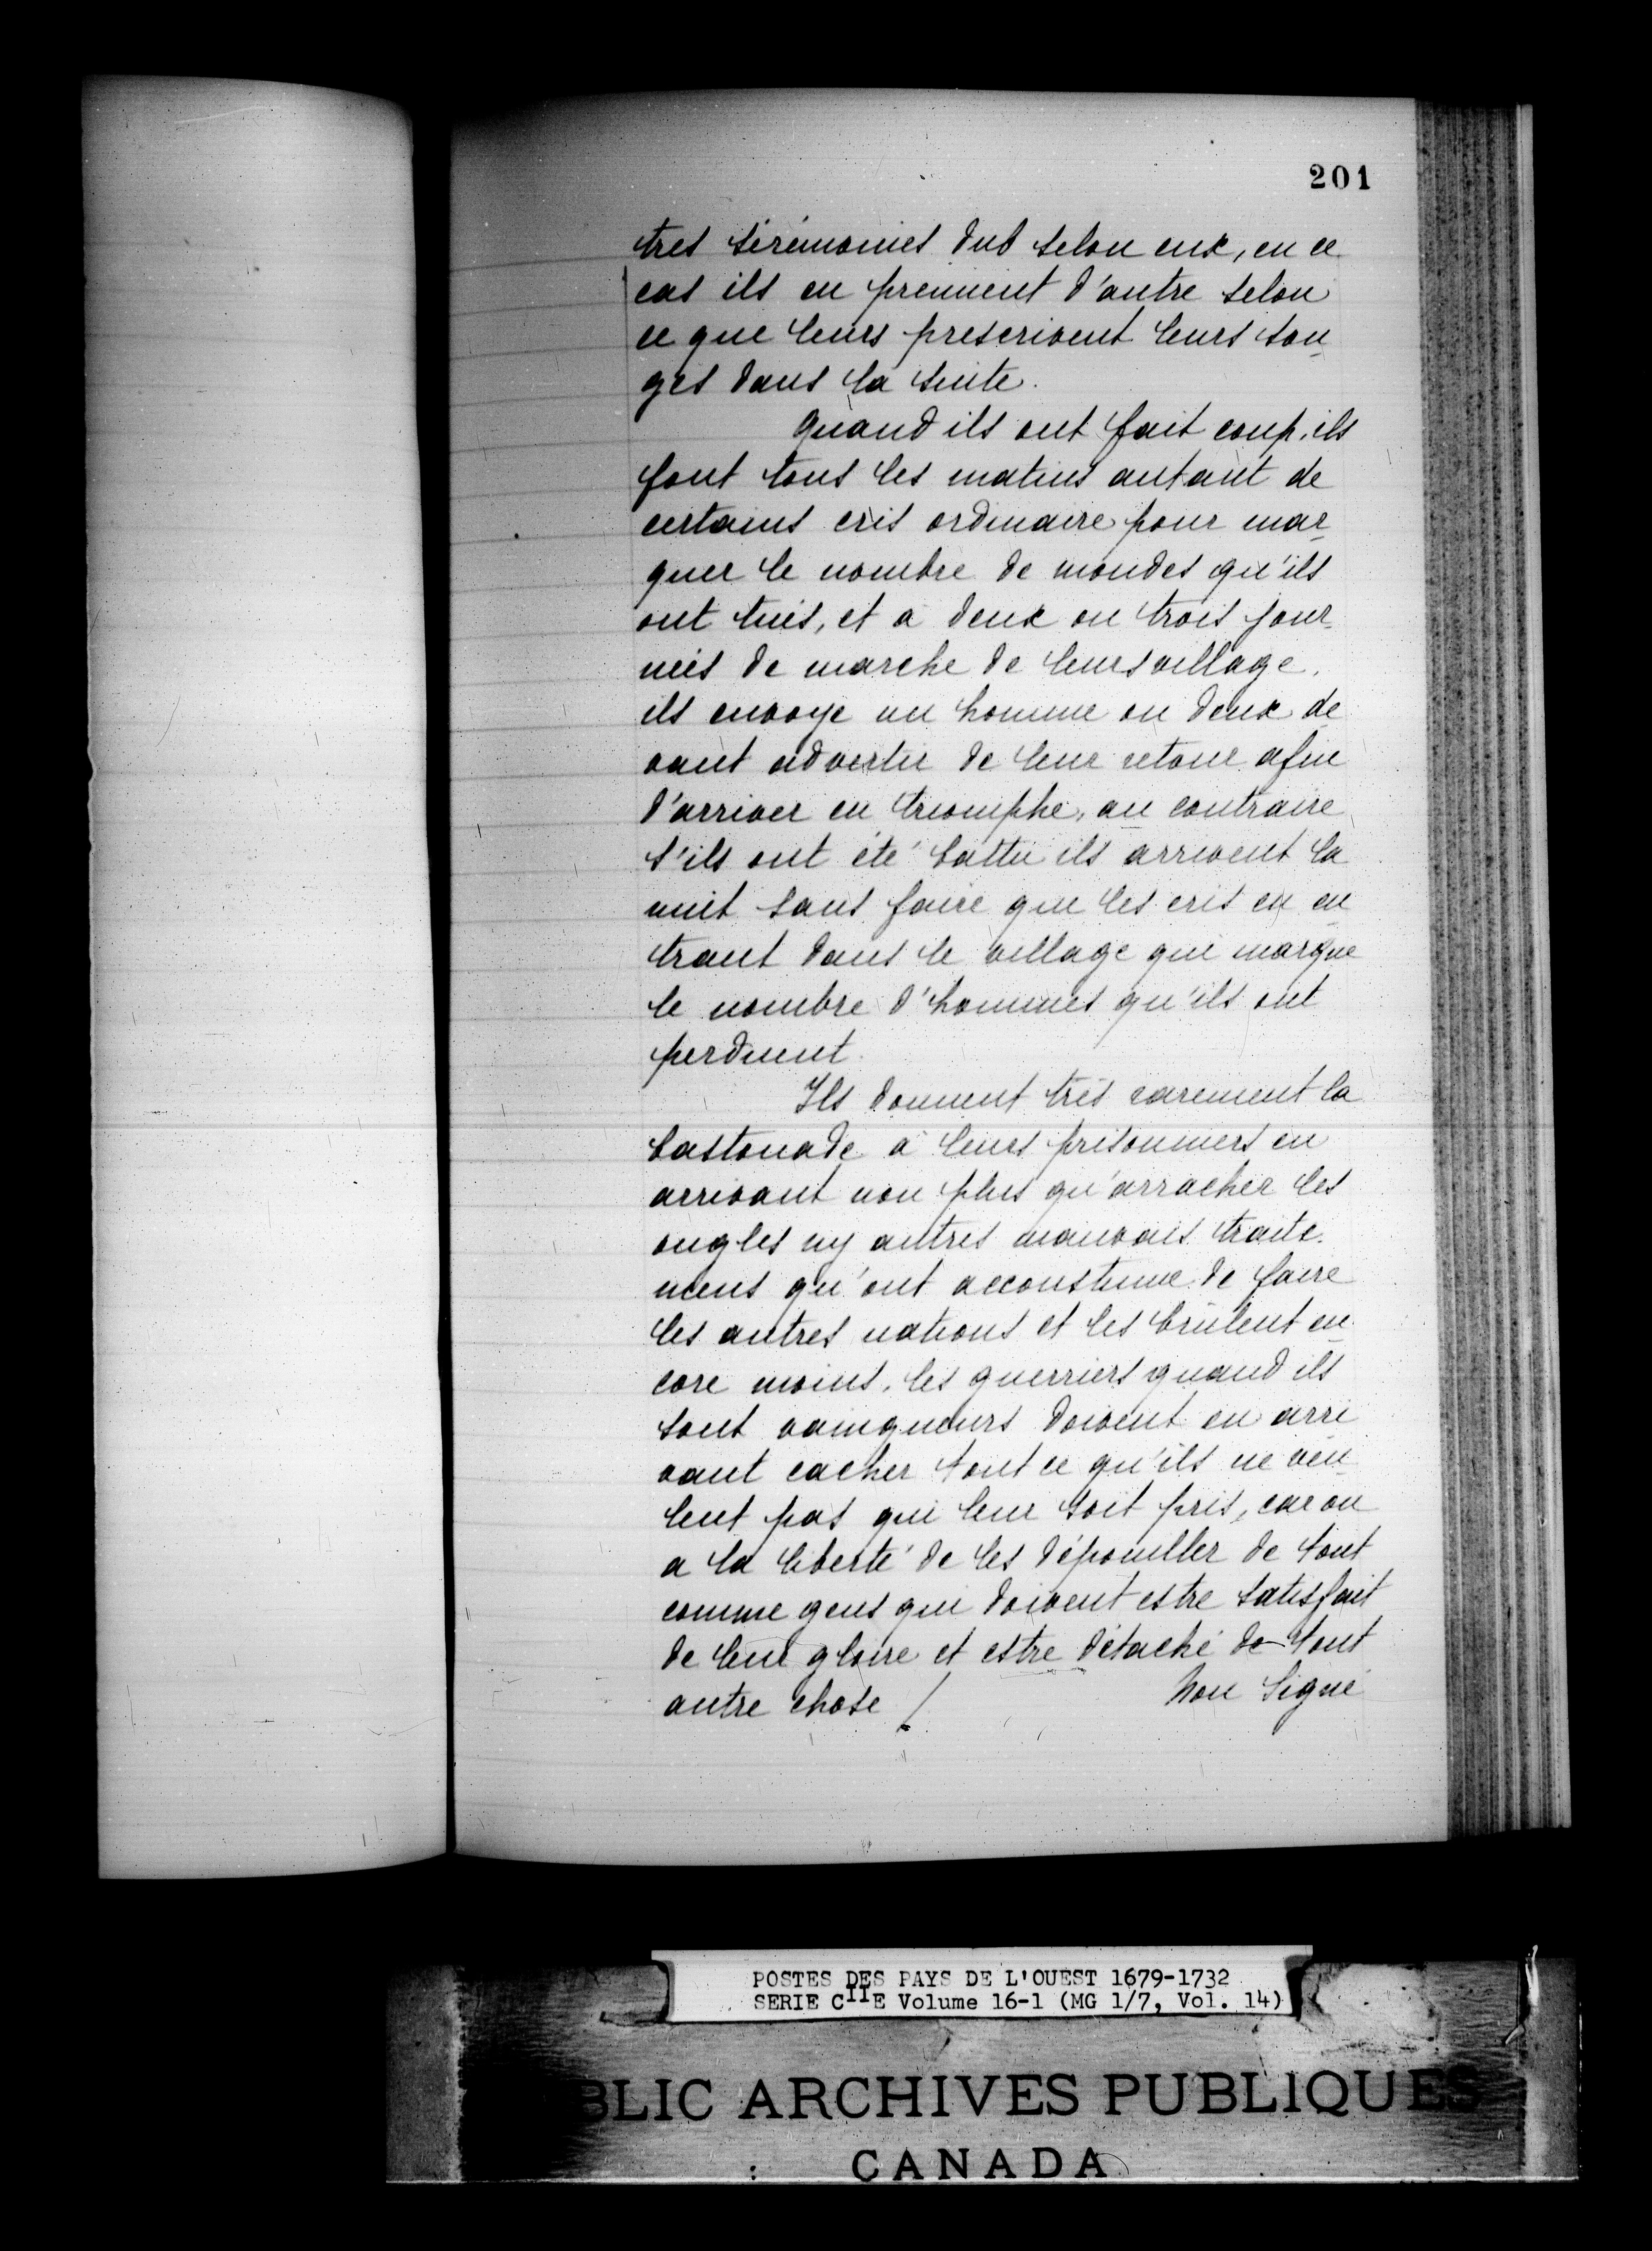 201
tres sérémonies dub selon eux, en ce
cas ils en prennent d'autre selon
ce que leurs prescrivent leurs son
ges dans la suite.
quand ils ont fait coup, ils
font tous les matins autant de
certains cris ordinaire pour mar
quer le nombre de mondes qu'ils
ont tués, et a deux ou trois jour
nées de marche de leurs village,
ils envoye un homme ou deux de
vant advertir de leur retour afin
d'arriver en triomphe, au contraire
s'ils ont été battu ils arrivent la
nuit sans faire que les cris en en
trant dans le village qui marque
le nombre d'hommes qu'ils ont
perduent.
Ils donnent très rarement la
bastonade a leurs prisonniers en
arrivant non plus qu'arracher les
ongles ny autres mauvais traite
mens qu'ont accoustume de faire
les autres nations et les brûlent en
core moins, les guerriers quand ils
sont vainqueurs doivent en arri
vant cacher tout ce qu'ils ne veu
lent pas qui leur soit pris, car on
a la liberté de les dépouiller de tout
comme gens qui doivent estre satisfait
de leur gloire et estre détaché de tout
autre chose / Non Signé
POSTES DES PAYS DE L'OUEST 1679-1732
SERIE CIIE Volume 16-1 (MG 1/7, Vol. 14)
BLIC ARCHIVES PUBLIQUES
CANADA